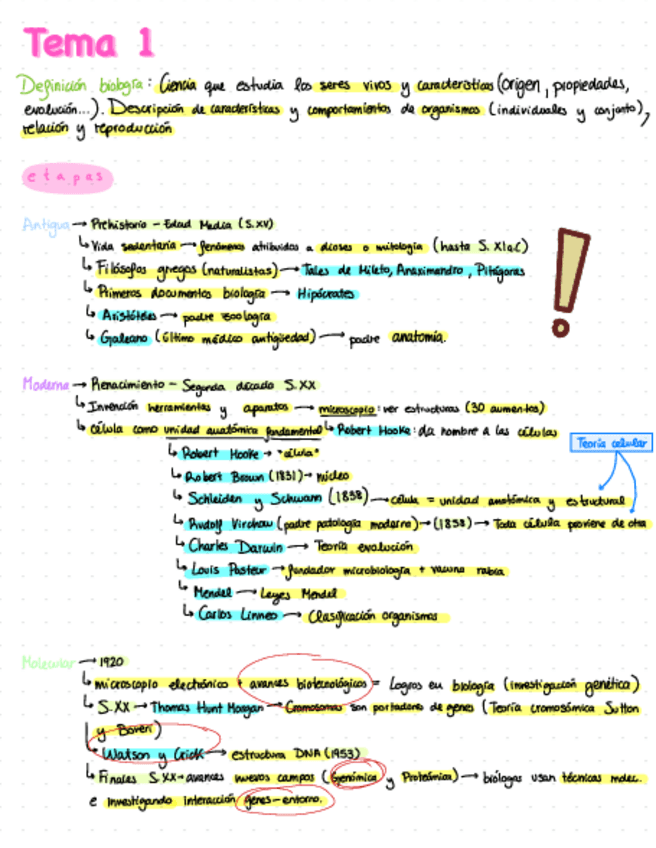 Tema 1
Definición biología: Ciencia que estudia los seres vivos y características (origen, propiedades,
evolución...). Descripción de características y comportamientos de organismos (individuales y conjunto),
relación y reproducción
etapas
Antigua → Prehistoria - Edad Media (S.XV)
↳ Vida sedentaria → fenómenos atribuidos a dioses o mitología (hasta S. XI a.C)
↳ Filósofos griegos (naturalistas) → Tales de Mileto, Anaximandro, Pitágoras
↳ Primeros documentos biología → Hipócrates
↳ Aristóteles → padre zoología
↳ Galeano (último médico antigüedad) → padre anatomía.
Moderna → Renacimiento - Segunda década S.XX
↳ Invención herramientas y aparatos → microscopio: ver estructuras (30 aumentos)
↳ célula como unidad anatómica fundamental ↳ Robert Hooke: da nombre a las células
Teoría celular
↳ Robert Hooke → "célula"
↳ Robert Brown (1831) → núcleo
↳ Schleiden y Schwann (1838) → célula = unidad anatómica y estructural
↳ Rudolf Virchow (padre patología moderna) → (1858) → Toda célula proviene de otra
↳ Charles Darwin → Teoría evolución
↳ Louis Pasteur → fundador microbiología + vacuna rabia
↳ Mendel → Leyes Mendel
↳ Carlos Linneo → Clasificación organismos
Molecular → 1920
↳ microscopio electrónico + avances biotecnológicos = Logros en biología (investigación genética)
↳ S.XX → Thomas Hunt Morgan → Cromosomas son portadores de genes (Teoría cromosómica Sutton
y Boveri)
↳ Watson y Crick → estructura DNA (1953)
↳ Finales S.XX → avances nuevos campos (Genómica y Proteómica) → biólogos usan técnicas molec.
e investigando interacción genes-entorno.